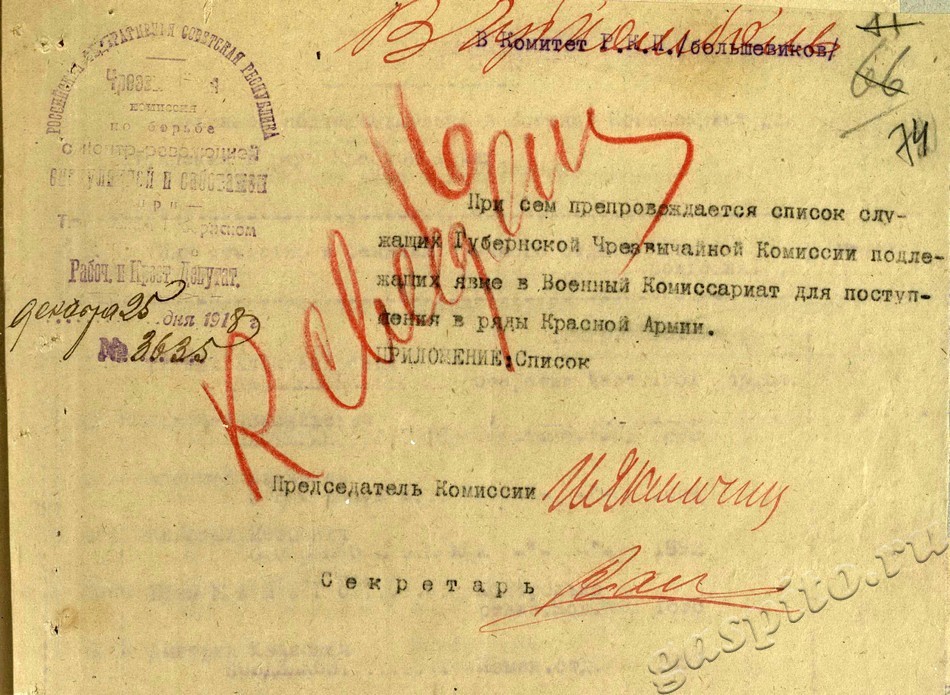 В Комитет Р.К.П./большевиков/
66
74
РОССИЙСКАЯ ФЕДЕРАТИВНАЯ СОВЕТСКАЯ РЕСПУБЛИКА
комиссия
по борьбе
с контр-революцией
спекуляцией и саботажем
при
Рабоч. и Крест. Депутат.
декабря 25 дня 1918 г.
№ 3635
При сем препровождается список слу-
жащих Губернской Чрезвычайной Комиссии подле-
жащих явке в Военный Комиссариат для поступ-
ления в ряды Красной Армии.
ПРИЛОЖЕНИЕ:Список
К сведению
Председатель Комиссии
Секретарь
gaspito.ru